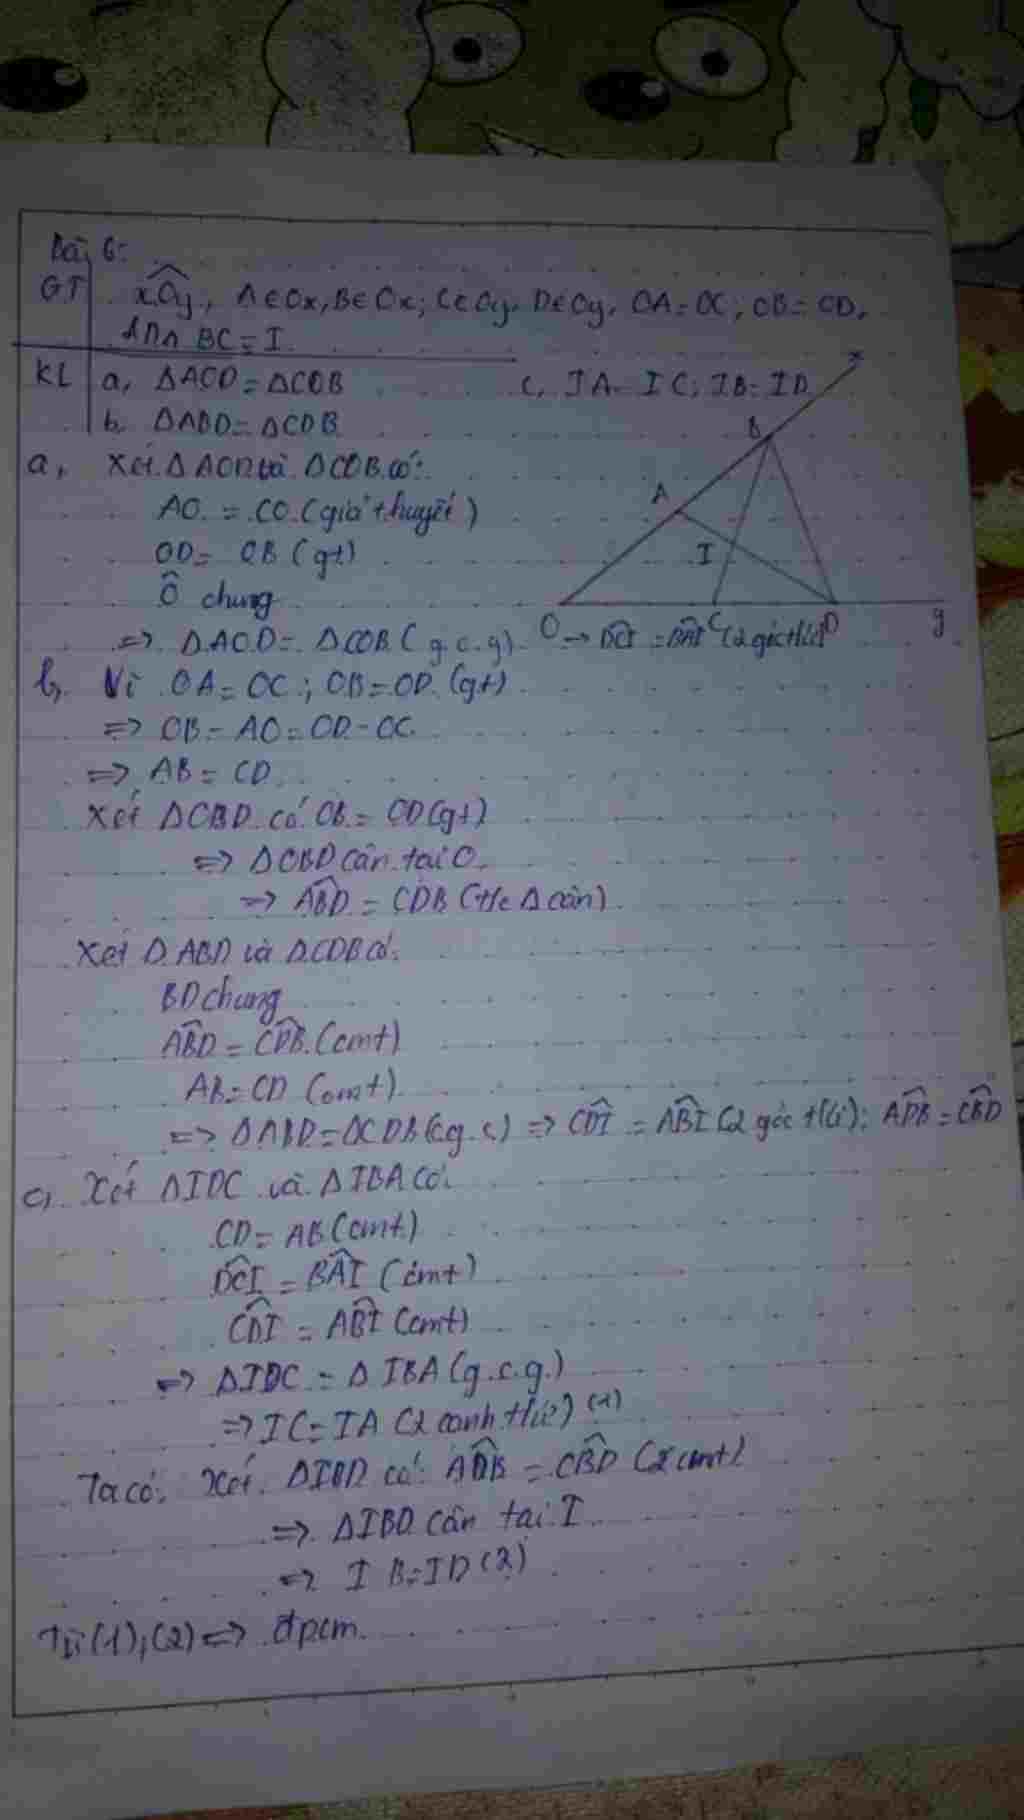 Bài 6:
GT xOy, A∈Ox, B∈Ox; C∈Oy, D∈Oy, OA=OC; OB=OD,
AD∩ BC=I.
KL a, ΔAOD=ΔCOB c, IA=IC; IB=ID
b, ΔABD=ΔCDB
x
B
A
I
O C D y
a, Xét ΔAOD và ΔCOB có:
AO = CO (giả thuyết)
OD= OB (gt)
Ô chung
=> ΔAOD= ΔCOB (g.c.g) => DCI = BAI (2 góc t/ứ)
b, Vì OA=OC; OB=OD (gt)
=> OB-AO=OD-OC
=> AB=CD
Xét ΔOBD có OB=OD(gt)
=> ΔOBD cân tại O.
=> ABD = CDB (t/c Δ cân)
Xét ΔABD và ΔCDB có:
BD chung
ABD = CDB (cmt)
AB=CD (cmt)
=> ΔABD=ΔCDB(c.g.c) => CDI = ABI (2 góc t/ứ); ADB = CBD
c, Xét ΔIDC và ΔIBA có:
CD= AB (cmt)
DCI = BAI (cmt)
CDI = ABI (cmt)
=> ΔIDC = ΔIBA (g.c.g.)
=> IC=IA (2 cạnh t/ứ) (1)
Ta có: Xét ΔIBD có: ADB = CBD (cmt)
=> ΔIBD cân tại I
=> IB=ID (2)
Từ (1);(2) => đpcm.